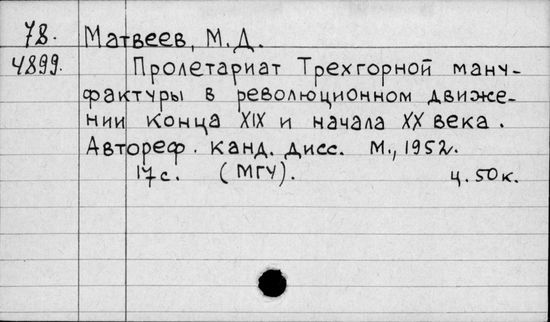 78. Матвеев, М.Д.
4899. Пролетариат Трехгорной ману-
фактуры в революционном движе-
нии конца XIX и начала XX века.
Автореф. канд. дисс. М., 1952.
17с. (МГУ). ц. 50к.